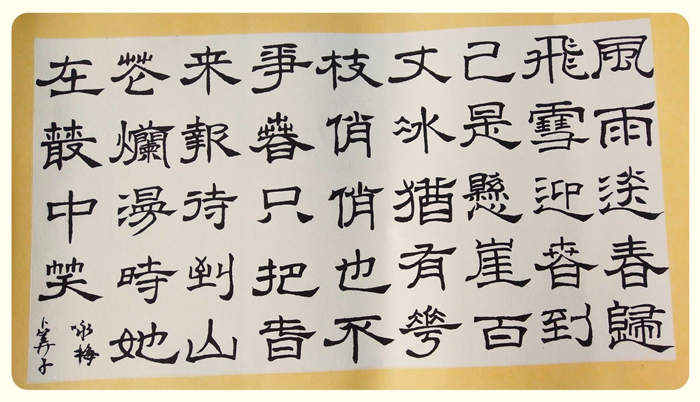 風雨送春歸
飛雪迎春到
己是懸崖百
丈冰猶有花
枝俏俏也不
爭春只把春
来報待到山
花爛漫時她
在叢中笑
咏梅
卜算子